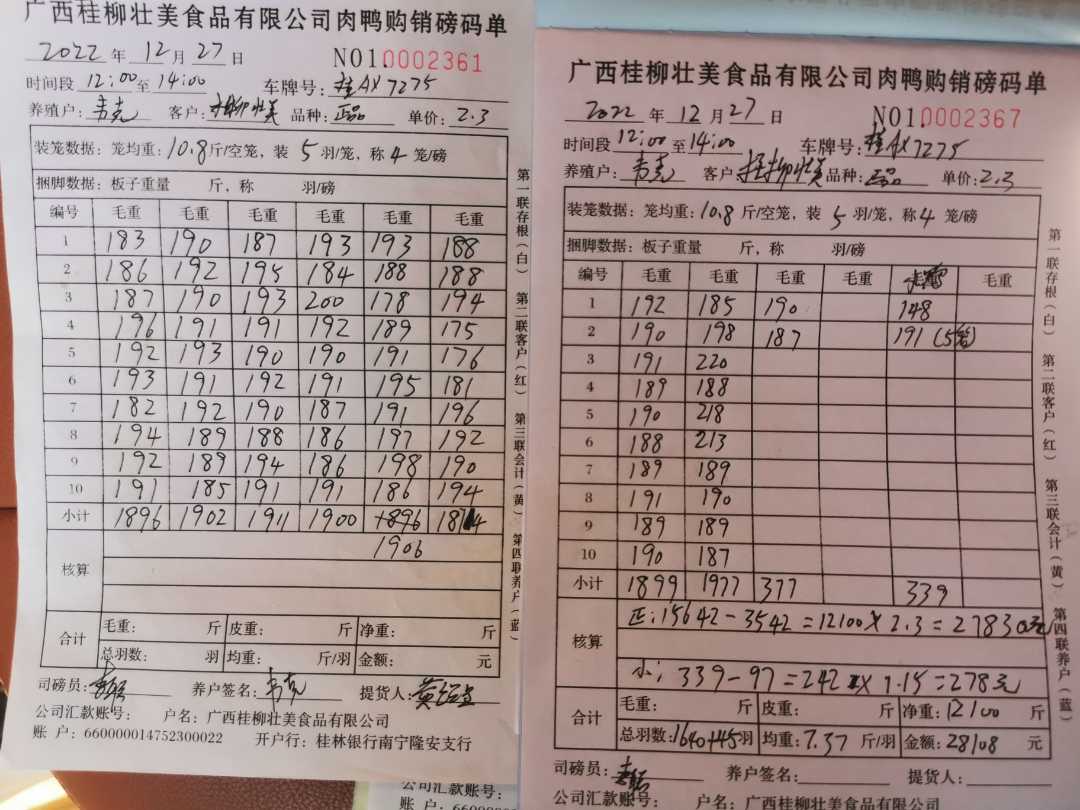 广西桂柳壮美食品有限公司肉鸭购销磅码单
2022 年 12 月 27 日 NO10002361
时间段 12:00 至 14:00 车牌号: 桂AX7275
养殖户: 韦克 客户: 桂柳壮美 品种: 正品 单价: 2.3
装笼数据: 笼均重: 10.8 斤/空笼, 装 5 羽/笼, 称 4 笼/磅
捆脚数据: 板子重量 斤, 称 羽/磅
编号 毛重 毛重 毛重 毛重 毛重 毛重
1 183 190 187 193 193 188
2 186 192 195 184 188 188
3 187 190 193 200 178 194
4 196 191 191 192 189 175
5 192 193 190 190 191 176
6 193 191 192 191 195 181
7 182 192 190 187 191 196
8 194 189 188 186 197 192
9 192 189 194 186 198 190
10 191 185 191 191 186 194
小计 1896 1902 1911 1900 1896 1874
1906
核算
合计 毛重: 斤 皮重: 斤 净重: 斤
总羽数: 羽 均重: 斤/羽 金额: 元
司磅员: 养户签名: 韦克 提货人:
公司汇款账号: 户名: 广西桂柳壮美食品有限公司
账 户: 660000014752300022 开户行: 桂林银行南宁隆安支行
第一联存根(白) 第二联客户(红) 第三联会计(黄) 第四联养户(蓝)
公司汇款账号:
广西桂柳壮美食品有限公司肉鸭购销磅码单
2022 年 12 月 27 日 NO10002367
时间段 12:00 至 14:00 车牌号: 桂AX7275
养殖户: 韦克 客户 桂柳壮美 品种: 正品 单价: 2.3
装笼数据: 笼均重: 10.8 斤/空笼, 装 5 羽/笼, 称 4 笼/磅
捆脚数据: 板子重量 斤, 称 羽/磅
编号 毛重 毛重 毛重 毛重 毛重
1 192 185 190 148
2 190 198 187 191 (5笼)
3 191 220
4 189 188
5 190 218
6 188 213
7 189 189
8 191 190
9 189 189
10 190 187
小计 1899 1977 377 339
核算 正: 15642-3542=12100×2.3=27830元
小: 339-97=242×1.15=278元
合计 毛重: 斤 皮重: 斤 净重: 12100 斤
总羽数: 1640+45 羽 均重: 7.37 斤/羽 金额: 28108 元
司磅员: 养户签名: 提货人:
公司汇款账号: 户名: 广西桂柳壮美食品有限公司
第一联存根(白) 第二联客户(红) 第三联会计(黄) 第四联养户(蓝)